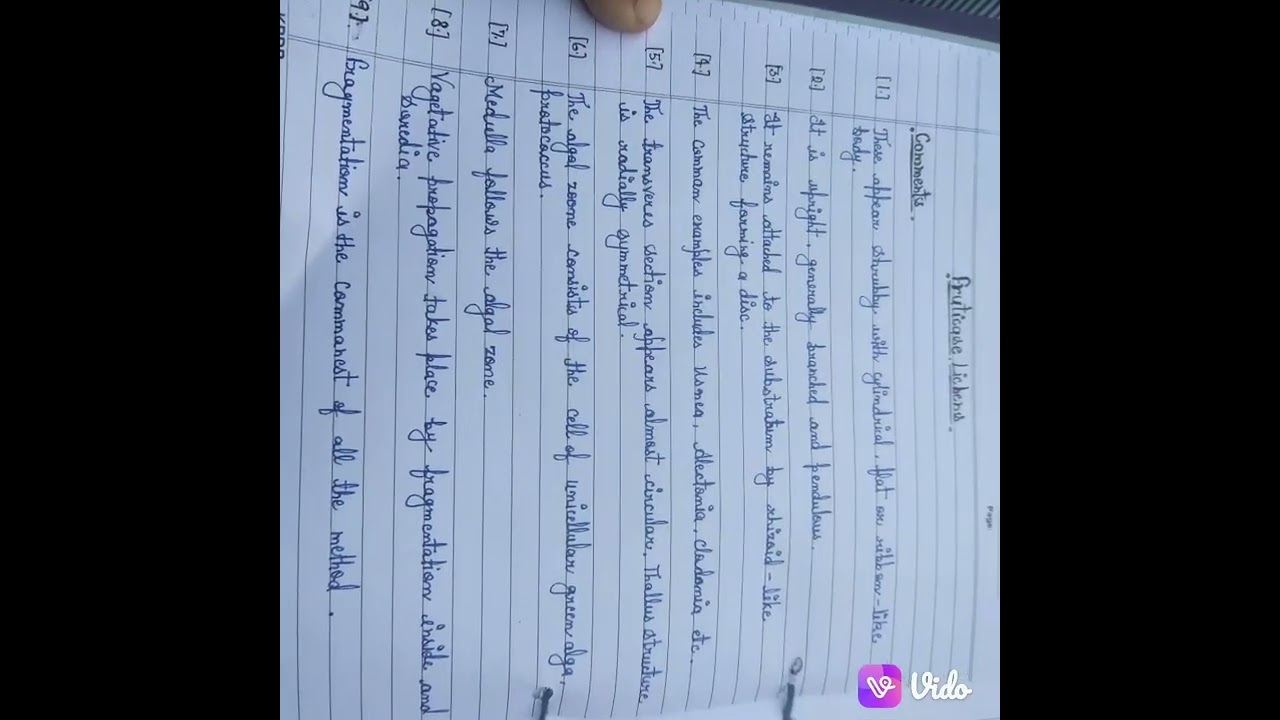 Page:
Fruticose Lichens.
Comments.
[1.] These appear shrubby with cylindrical, flat or ribbon-like
body.
[2.] It is upright, generally branched and pendulous.
[3.] It remains attached to the substratum by rhizoid-like
structure forming a disc.
[4.] The comman examples includes Usnea, Alectonia, cladonia etc.
[5.] The transveres section appears almost circular. Thallus structure
is radially symmetrical.
[6.] The algal zoone consists of the cell of unicellular green alga,
protococcus.
[7.] Medulla follows the algal zone.
[8.] Vagetative propagation takes place by fragmentation inside and
soredia.
9.] Fragmentation is the commanest of all the method.
Vido